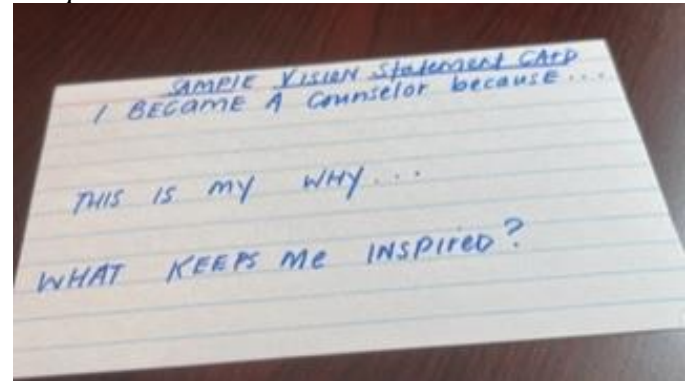 SAMPLE VISION Statement CARD
I BECAME A Counselor because...
THIS IS my WHY...
WHAT KEEPS me INSPIRED?